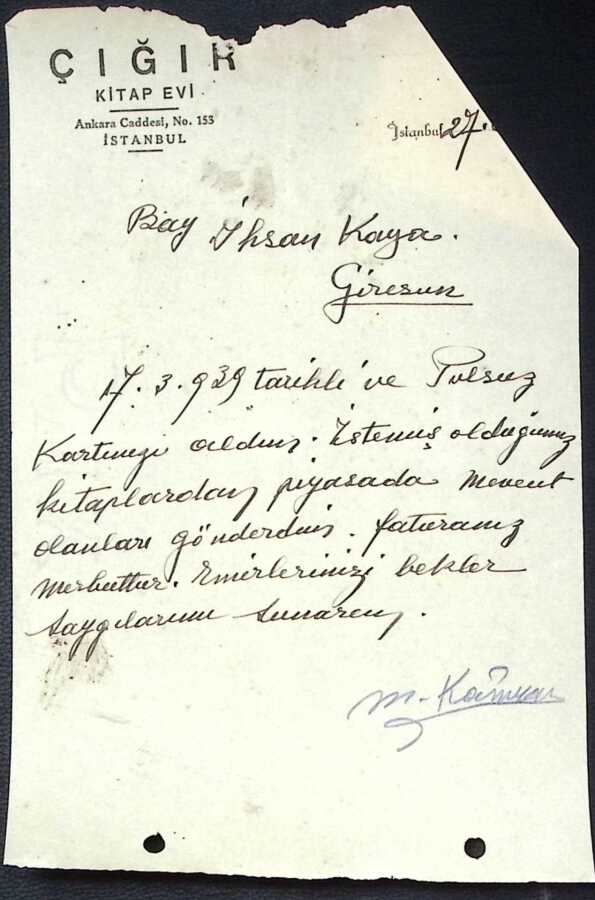 ÇIĞIR
KİTAP EVİ
Ankara Caddesi, No. 153
İSTANBUL
İstanbul 27.
Bay İhsan Kaya.
Giresun
17.3.939 tarihli ve Pulsuz
Kartınızı aldım. İstemiş olduğunuz
kitaplardan piyasada mevcut
olanları gönderdim. faturanız
merbuttur. Emirlerinizi bekler
saygılarımı sunarım.
M. Kâmran